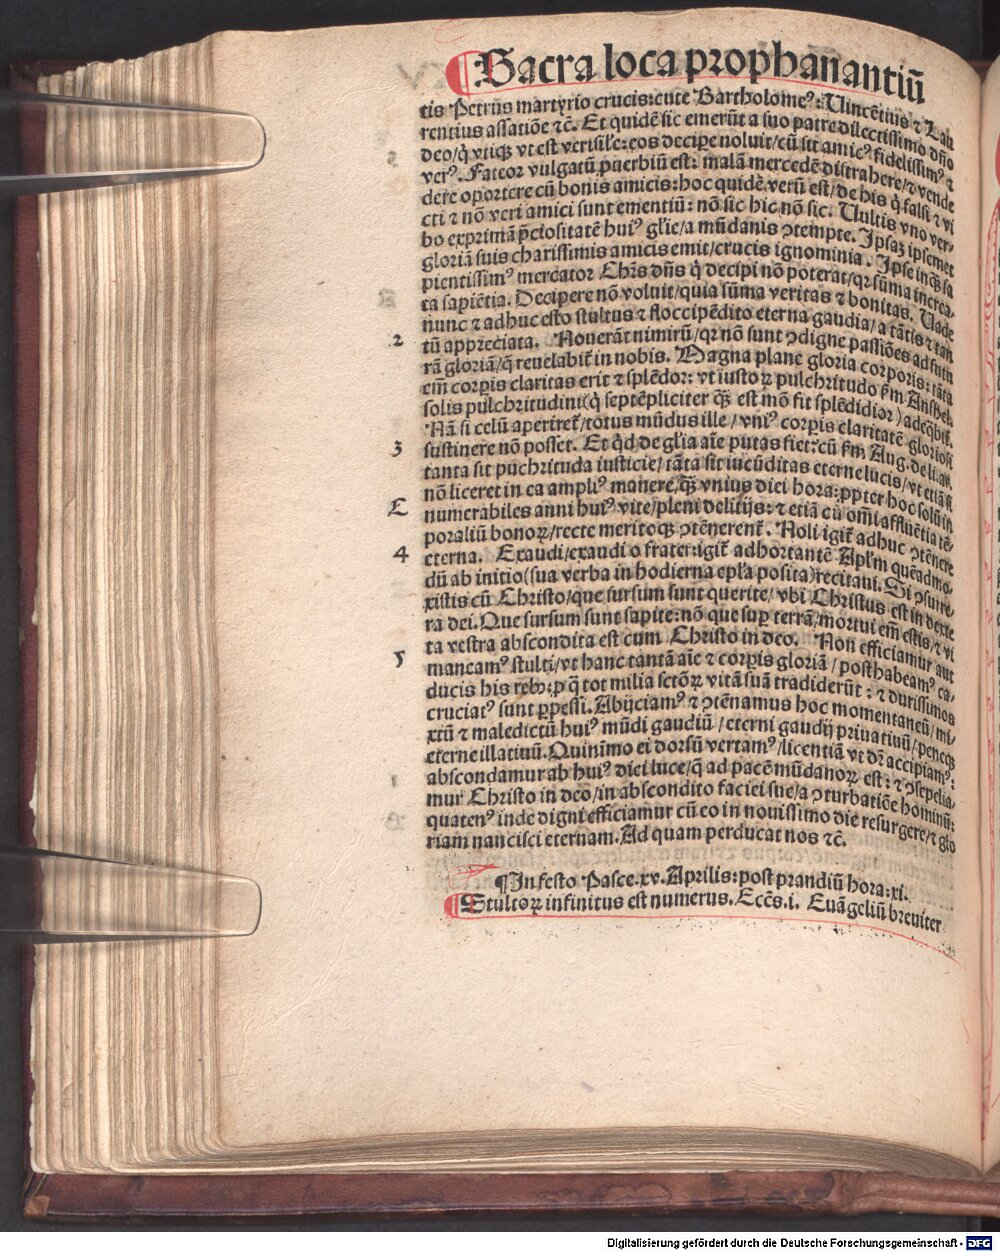 Sacra loca prophanantiū
tis Petrus martyrio crucis: cute Bartholomeꝰ: Uincētius ⁊ Lau
rentius assatiōe ⁊c̄. Et quidē sic emerūt a suo patre dilectissimo dn̄o
deo/q̄ vtiqꝫ vt est verisil'e: eos decipe noluit/cū sit amicꝰ fidelissimꝰ ⁊
verꝰ. Fateor vulgatū ꝓuerbiū est: malā mercedē distrahere/⁊ vende
dere oportere cū bonis amicis: hoc quidē verū est/de his q̄ falsi ⁊ vi
cti ⁊ nō veri amici sunt ementiū: nō sic hic nō sic. Uultis vno ver-
bo exprimā p̄ciositatē huiꝰ gl'ie/a mūdanis ꝯtempte. Ipsaꝫ ipsemet
gloriā suis charissimis amicis emit/crucis ignominia. Ipse inqꝫ sa
pientissimꝰ mercator Chr̄s dn̄s q̄ decipi nō poterat/qꝛ sūma increa-
ta sapiētia. Decipere nō voluit/quia sūma veritas ⁊ bonitas. Uade
nunc ⁊ adhuc esto stultus ⁊ floccipēdito eterna gaudia/a tātis ⁊ tan
2 tū appreciata. Nouerāt nimirū/qꝛ nō sunt ꝯdigne passiōes ad futu
rā gloriā/q̄ reuelabit̄ in nobis. Magna plane gloria corporis: tāta
em̄ corꝑis claritas erit ⁊ splēdor: vt iustoꝝ pulchritudo ẜm Anshel.
solis pulchritudini(q̄ septēpliciter qꝫ est mō fit splēdidior) adeq̄bit̄.
Nā si celū aperiret̄/totus mūdus ille/vniꝰ corꝑis claritatē gloriosi
3 sustinere nō posset. Et qͥd de gl'ia aīe putas fiet: cū ẜm Aug. de li. ar.
tanta sit puchrituda iusticie/tāta sit iucūditas eterne lucis/vt etiā si
nō liceret in ea ampliꝰ manere/qꝫ vnius diei hora: ꝓpter hoc solū in
C numerabiles anni huiꝰ vite/pleni delitijs: ⁊ etiā cū om̄i affluētia tē-
poraliū bonoꝝ/recte meritoqꝫ ꝯtēnerent̄. Noli igit̄ adhuc ꝯtēnere
4 eterna. Exaudi/exaudi o frater: igit̄ adhortantē Apl'm quēadmo-
dū ab initio(sua verba in hodierna epl'a posita)recitaui. Si ꝯsurre-
xistis cū Christo/que sursum sunt querite/vbi Christus est in dexte
ra dei. Que sursum sunt sapite: nō que suꝑ terrā/mortui em̄ estis/⁊ vi
ta vestra abscondita est cum Christo in deo. Non efficiamur aut
5 maneamꝰ stulti/vt hanc tantā aīe ⁊ corꝑis gloriā/posthabeamꝰ ca-
ducis his rebꝰ: ꝓ q̄ tot milia sctōꝝ vitā suā tradiderūt: ⁊ durissimos
cruciatꝰ sunt ꝑpessi. Abijciamꝰ ⁊ ꝯtēnamus hoc momentaneū/mi-
xtū ⁊ maledictū huiꝰ mūdi gaudiū/eterni gaudij priuatiuū/peneqꝫ
eterne illatiuū. Quinimo ei dorsū vertamꝰ/licentiā vt dr̄ accipiamꝰ:
abscondamur ab huiꝰ diei luce/q̄ ad pacē mūdanoꝝ est: ⁊ ꝯsepelia-
mur Christo in deo/in abscondito faciei sue/a ꝯturbatiōe hominū:
quatenꝰ inde digni efficiamur cū eo in nouissimo die resurgere/⁊ glo
riam nancisci eternam. Ad quam perducat nos ⁊c̄.
¶In festo Pasce.xv.Aprilis: post prandiū hora: xi.
Stultoꝝ infinitus est numerus. Eccēs.i. Euāgeliū breuiter
Digitalisierung gefördert durch die Deutsche Forschungsgemeinschaft - DFG